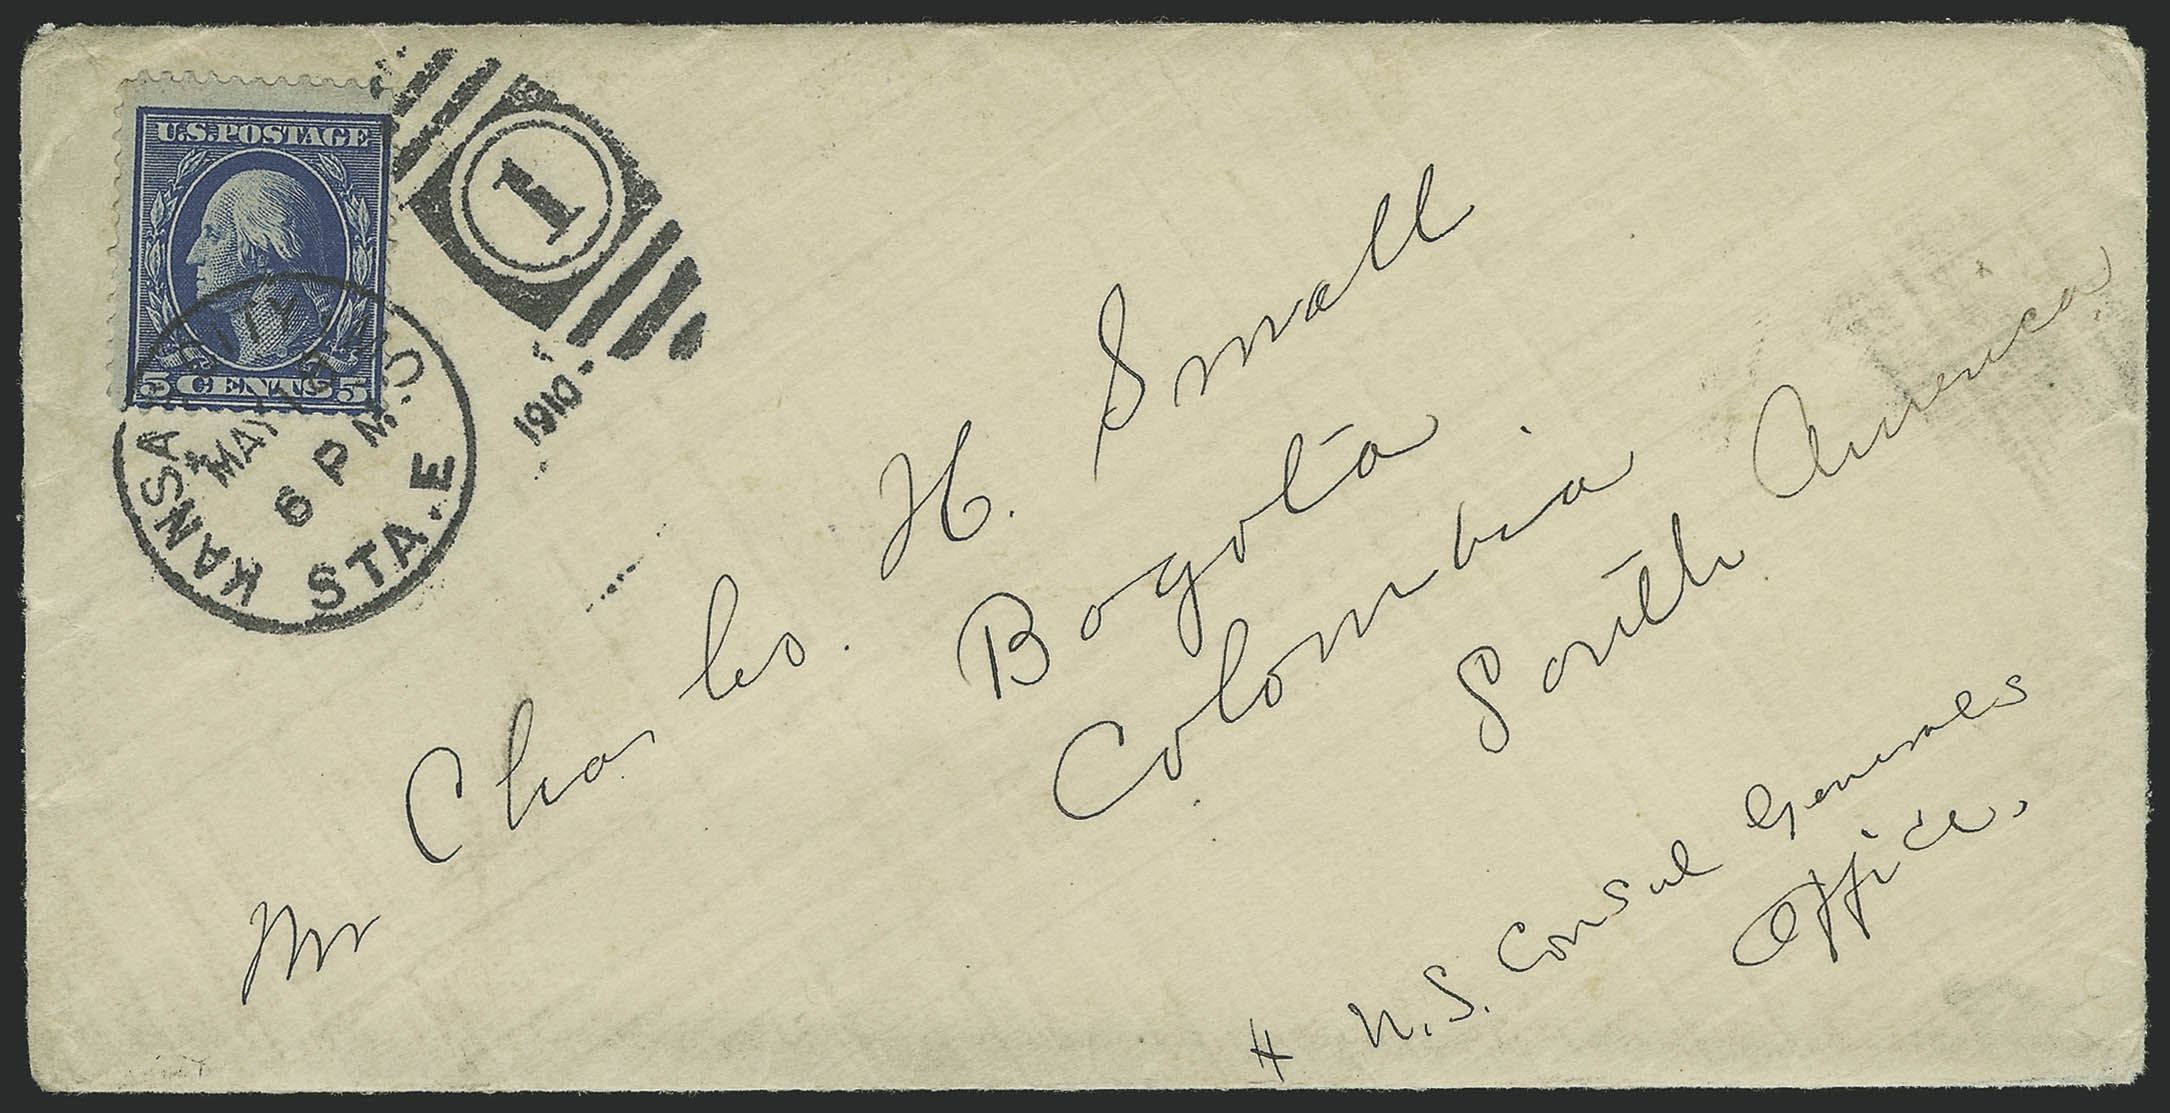 U.S. POSTAGE
5 CENTS 5
1
1910
KANSAS CITY, MO.
MAY
6 PM
STA. E
Mr Charles. H. Small
Bogota
Colombia.
South America
# U.S. Consul Generals
Office.